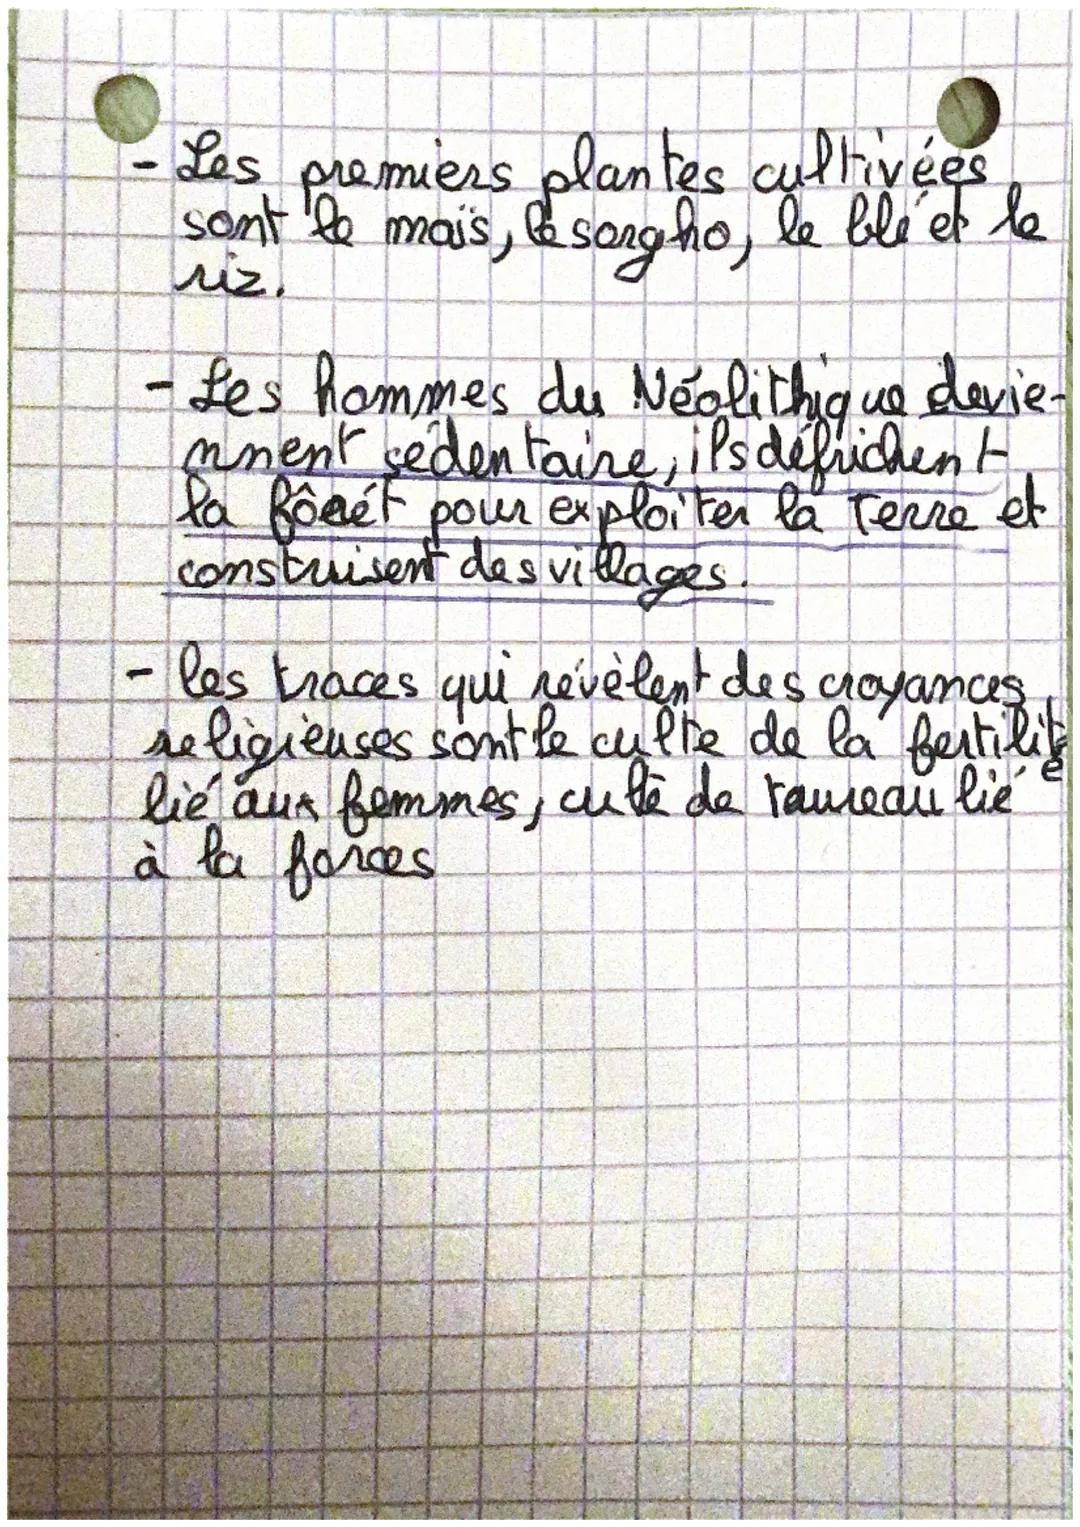 - Les premiers plantes cultivées
sont le maïs, le sorgho, le blé et le
riz.
- Les hommes du Néolithique devie-
nnent sédentaire, ils défrichent
la fôrét pour exploiter la Terre et
construisent des villages.
- les traces qui révèlent des croyances
religieuses sont le culte de la fertilité
lié aux femmes, culte de taureau lié
à la forces